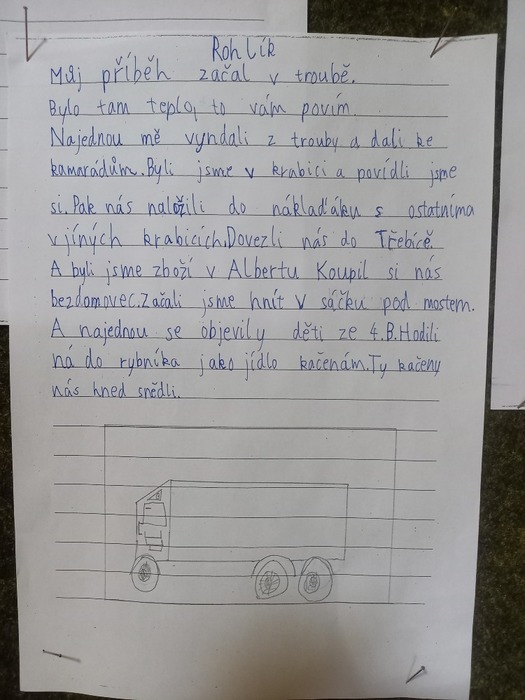 Rohlík
Můj příběh začal v troubě.
Bylo tam teplo, to vám povím.
Najednou mě vyndali z trouby a dali ke
kamarádům. Byli jsme v krabici a povídli jsme
si. Pak nás naložili do náklaďáku s ostatníma
v jíných krabicích. Dovezli nás do Třebíče
A byli jsme zboží v Albertu Koupil si nás
bezdomovec. Začali jsme hnít v sáčku pod mostem.
A najednou se objevily děti ze 4.B. Hodili
ná do rybníka jako jídlo kačenám. Ty kačeny
nás hned snědli.